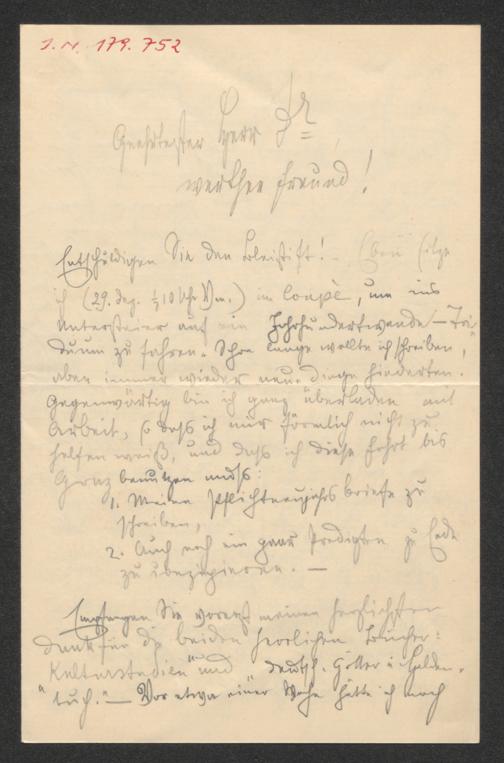 J. N. 179.752
Geehrtester Herr Dr
werther Freund!
Entschuldigen Sie den Bleistift! – Eben sitze
ich (29. Dez. ½10 Uhr Vm.) im Coupè, um ins
Untersteier auf ein Jahrhundertwende – Tri-
duum zu fahren. Schon lange wollte ich schreiben,
aber immer wieder neue Dinge hinderten.
Gegenwärtig bin ich ganz überladen mit
Arbeit, so dass ich mir förmlich nicht zu
helfen weiß, und dass ich diese Fahrt bis
Graz benutzen muss:
1. Meine Pflichtneujahrsbriefe zu
schreiben,
2. Auch noch ein paar Predigten zu Ende
zu conzipieren. –
Empfangen Sie vorerst meinen herzlichsten
Dank für die beiden herrlichen Bücher:
Kulturstudien" und deutsch. Götter u. Helden-
"buch." – Vor etwa einer Woche hätte ich noch